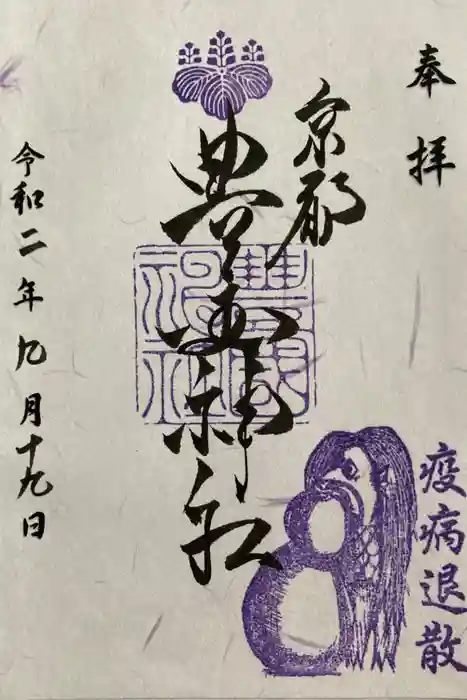 奉拝
京都
豊国神社
豐國
神社
令和二年九月十九日
疫病退散